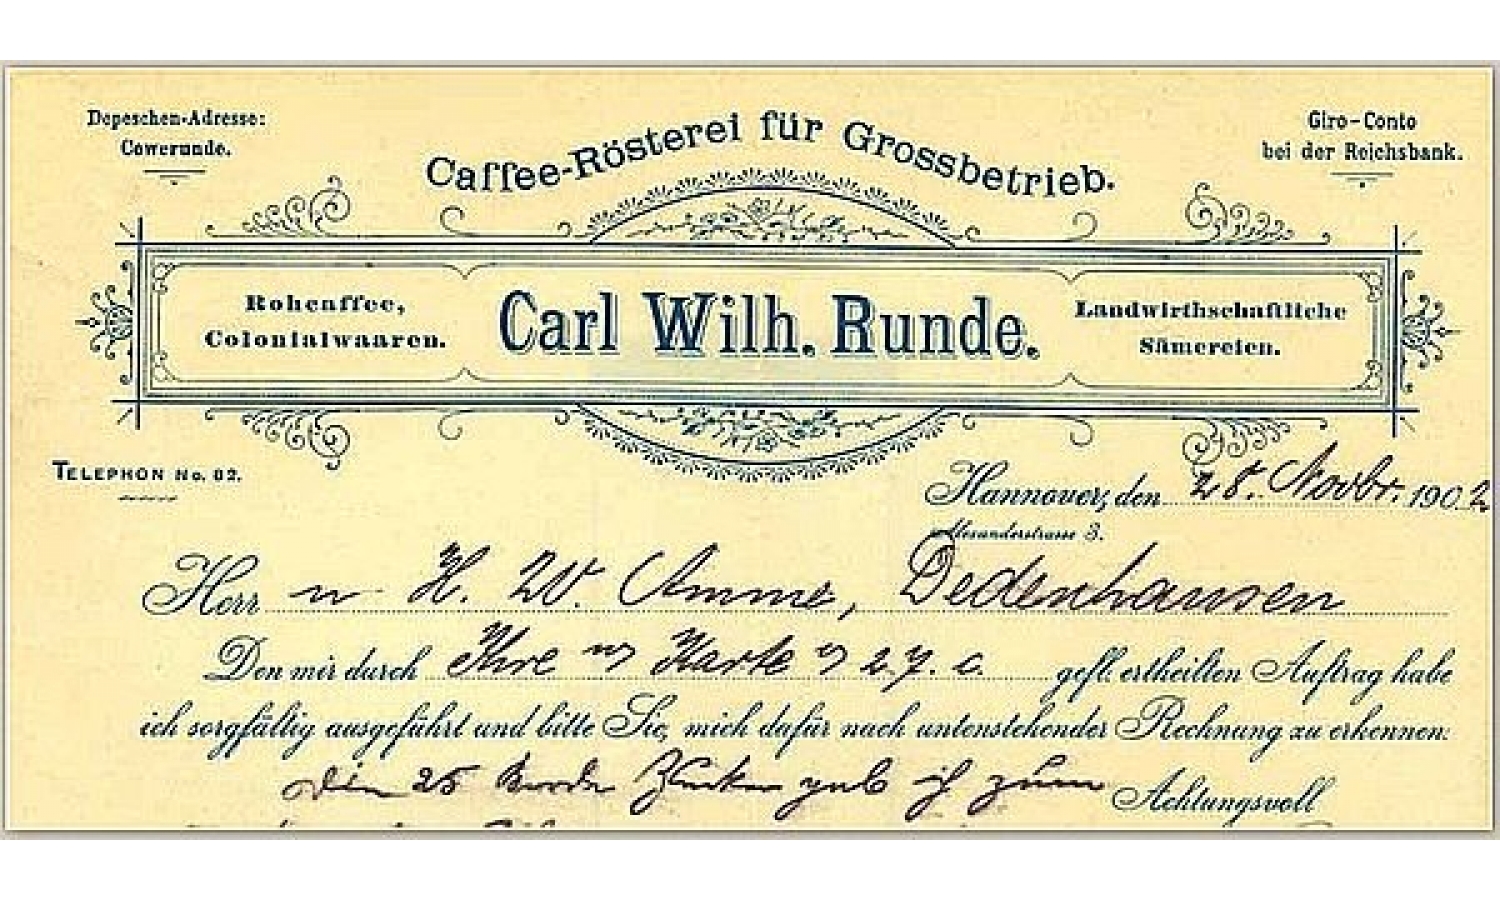 Depeschen-Adresse:
Cowerunde.
Giro-Conto
bei der Reichsbank.
Caffee-Rösterei für Grossbetrieb.
Rohcaffee,
Colonialwaaren.
Carl Wilh. Runde.
Landwirthschaftliche
Sämereien.
TELEPHON No. 82.
Hannover, den 28. Novbr. 1902
Alexanderstrasse 3.
Herrn H. W. Amme, Dedenhausen
Den mir durch Ihre Karte 27. c. gefl. ertheilten Auftrag habe
ich sorgfältig ausgeführt und bitte Sie, mich dafür nach untenstehender Rechnung zu erkennen.
Die 25 gab ich zum Achtungsvoll